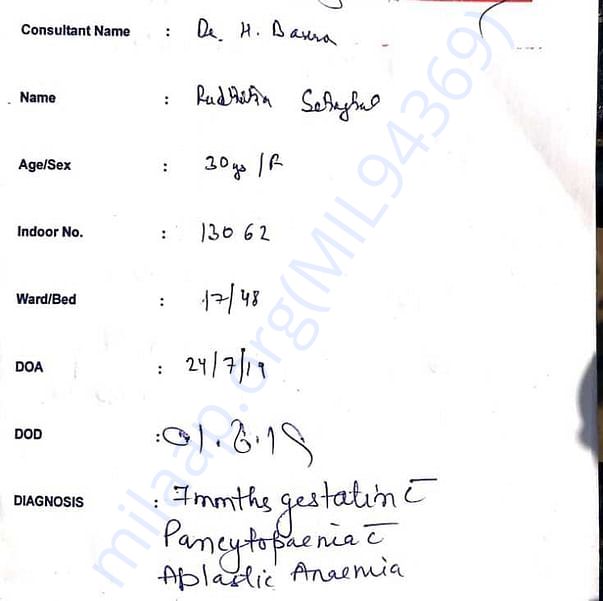 Consultant Name : Dr. H. Basra
Name :
Age/Sex : 30 ys / F
Indoor No. : 13062
Ward/Bed : 17/48
DOA : 24/7/19
DOD : 01.8.19
DIAGNOSIS : 7 months gestation c̄
Pancytopaenia c̄
Aplastic Anaemia
milaap.org(MIL94369)